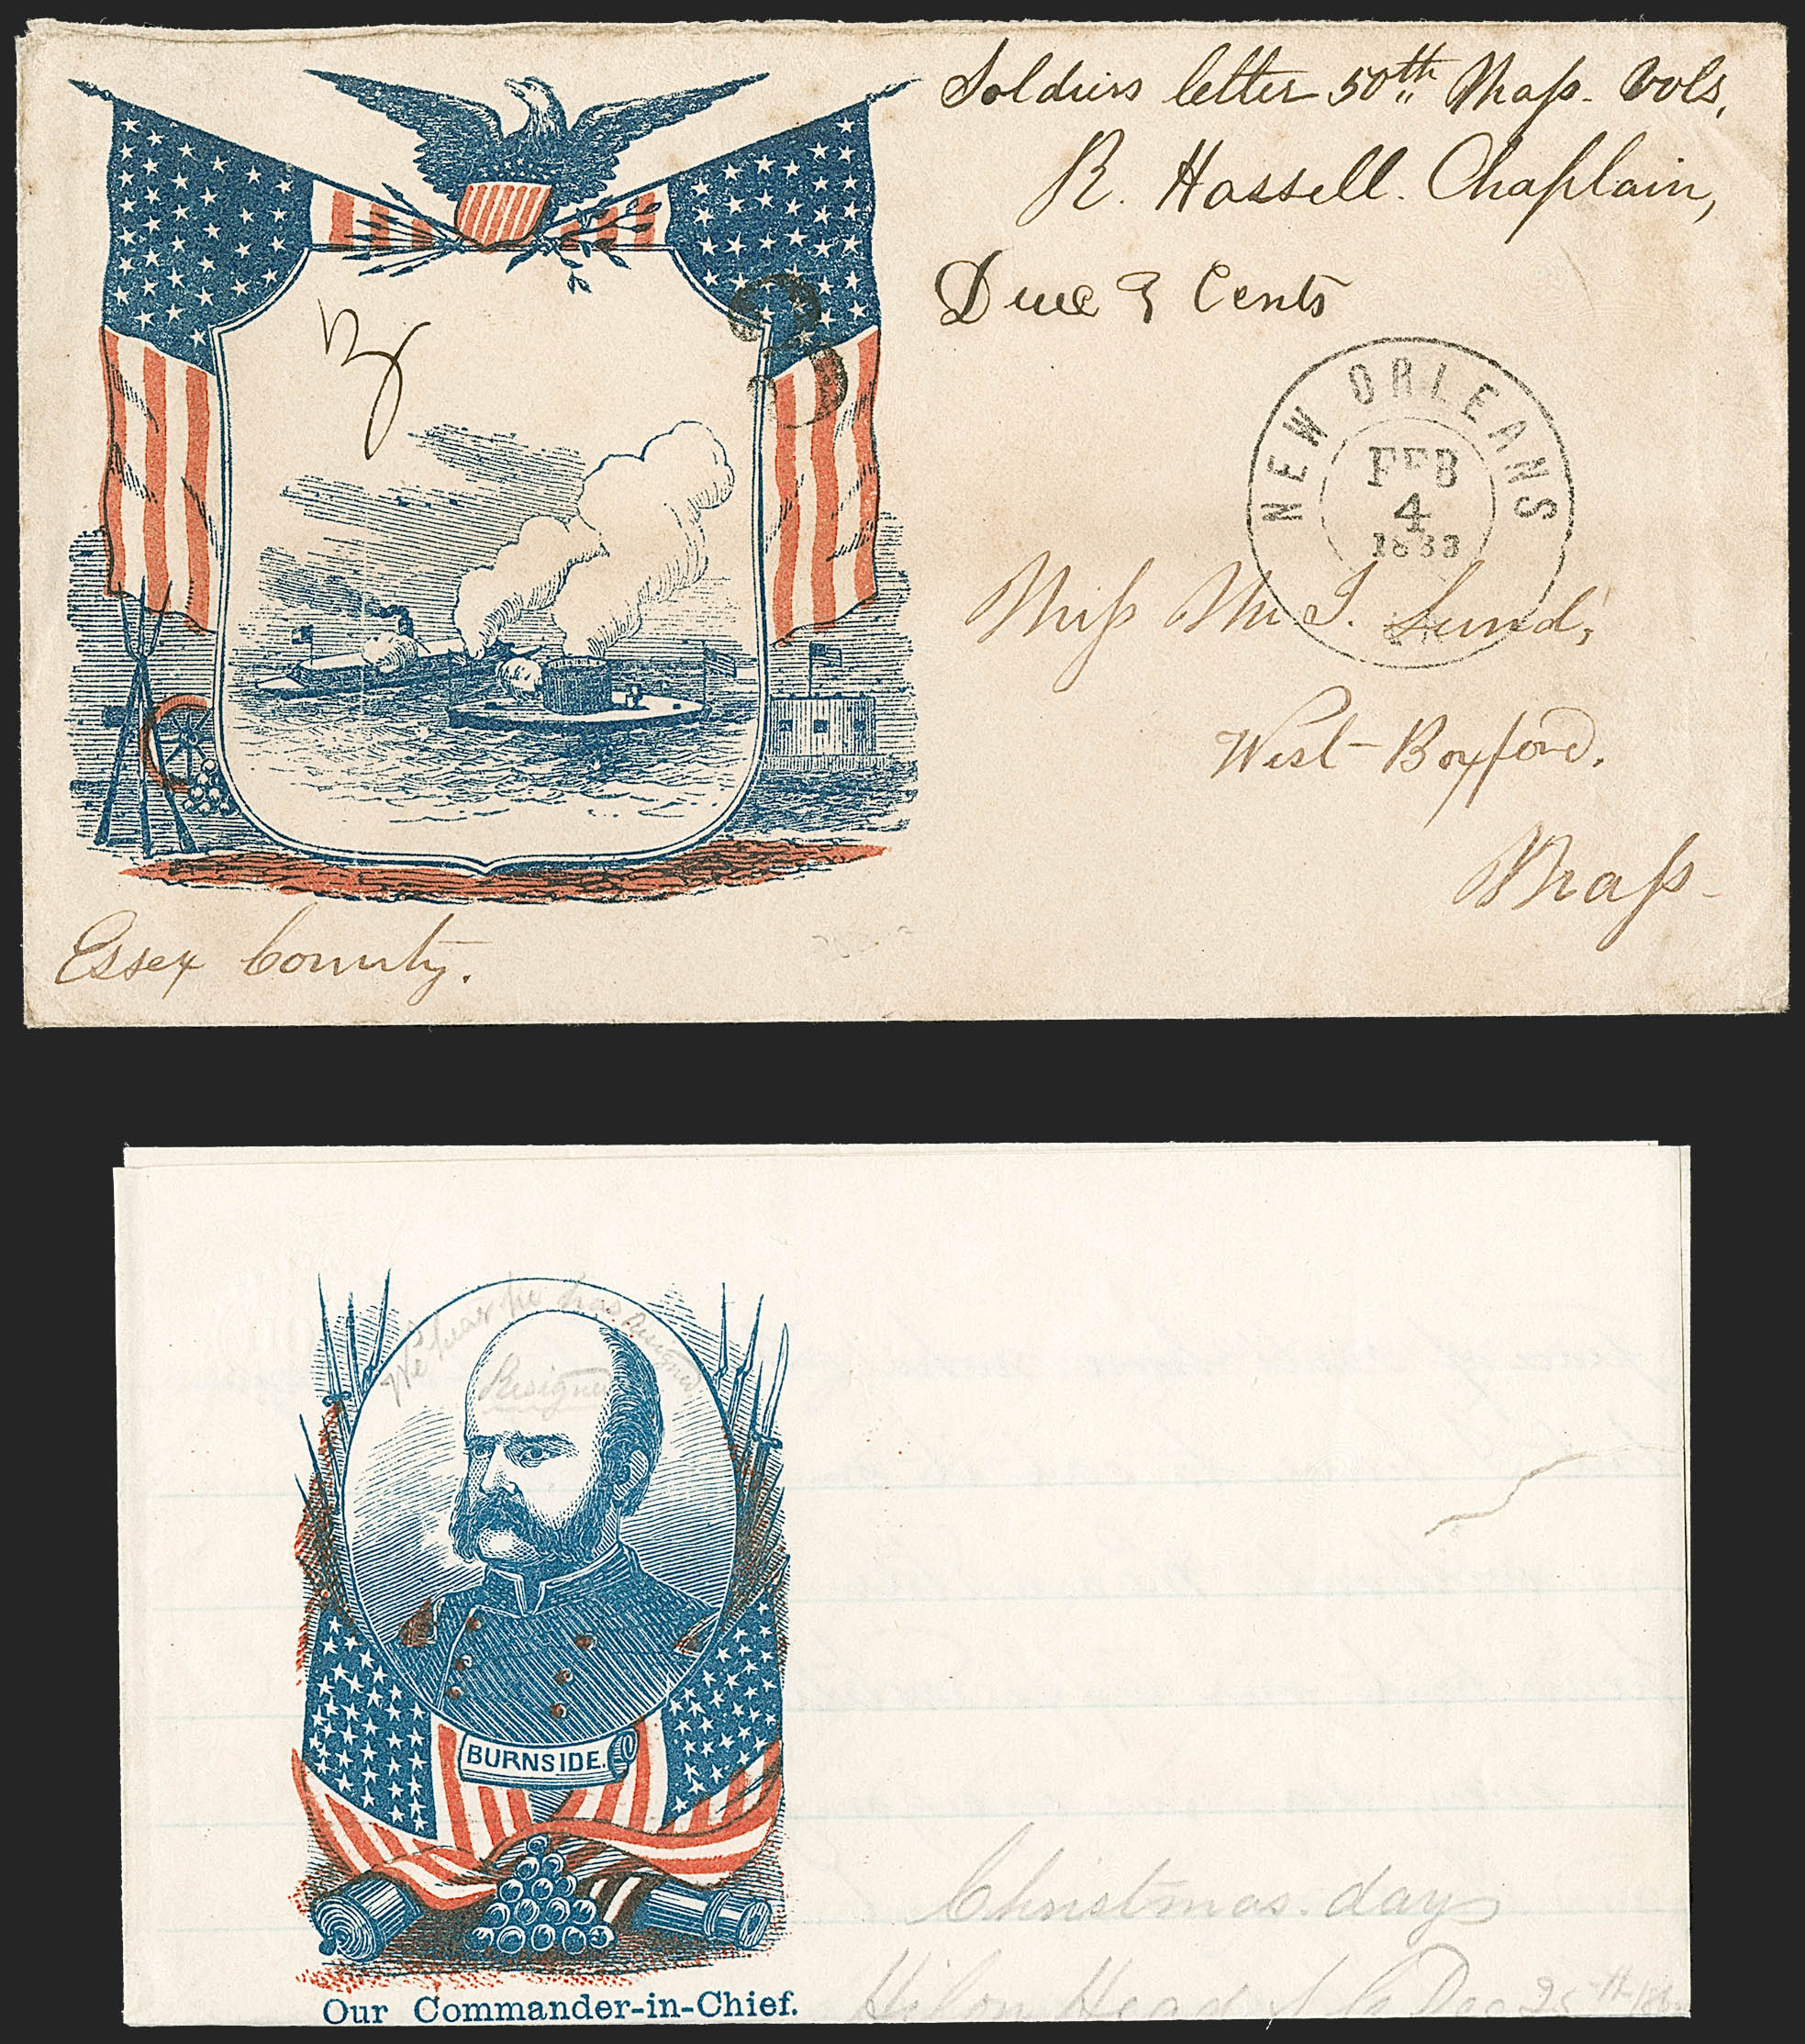 Soldiers letter 50th Mass. Vols,
R. Hassell. Chaplain,
Due 3 Cents
3
3
3
NEW ORLEANS
FEB
4
1863
LA
Miss M. S. Lund,
West-Boxford.
Mass-
Essex County.
We hear he has resigned
Resigned
BURNSIDE.
Our Commander-in-Chief.
Christmas. day
Hilton Head S. C. Dec 25th 186